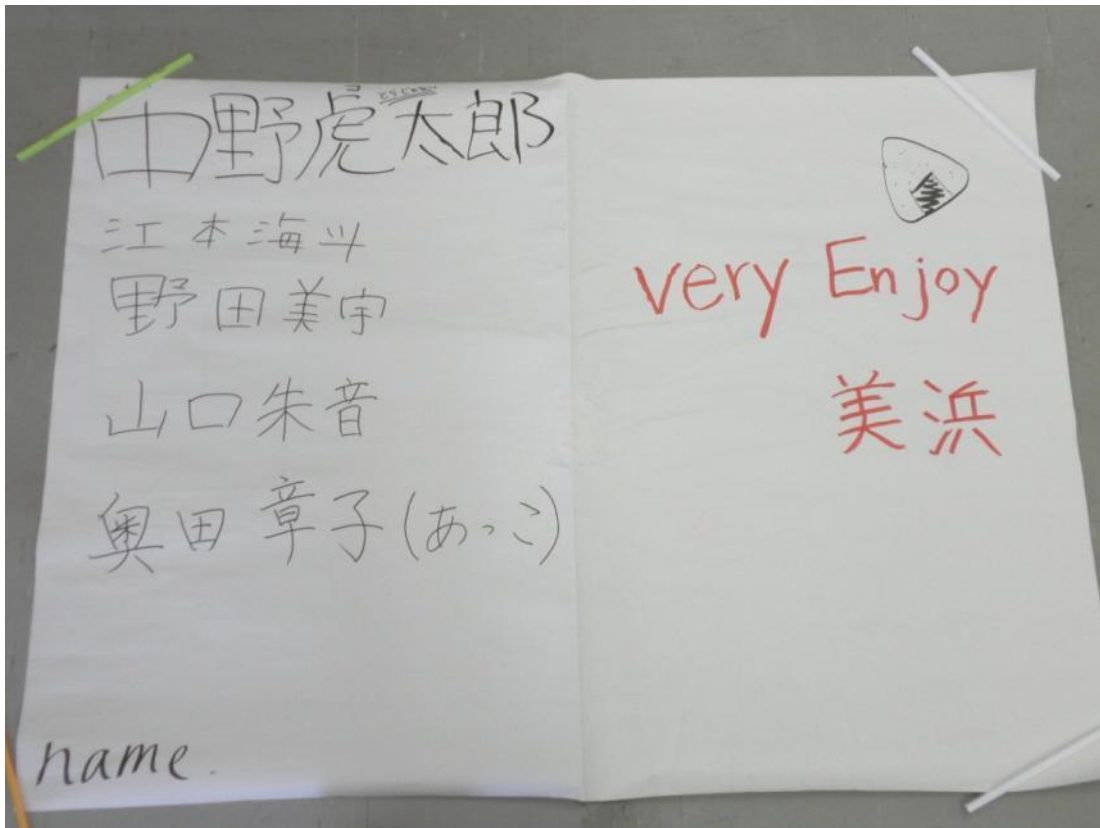 中野虎太郎
江本海斗
野田美宇
山口朱音
奥田章子(あっこ)
name.
very Enjoy
美浜